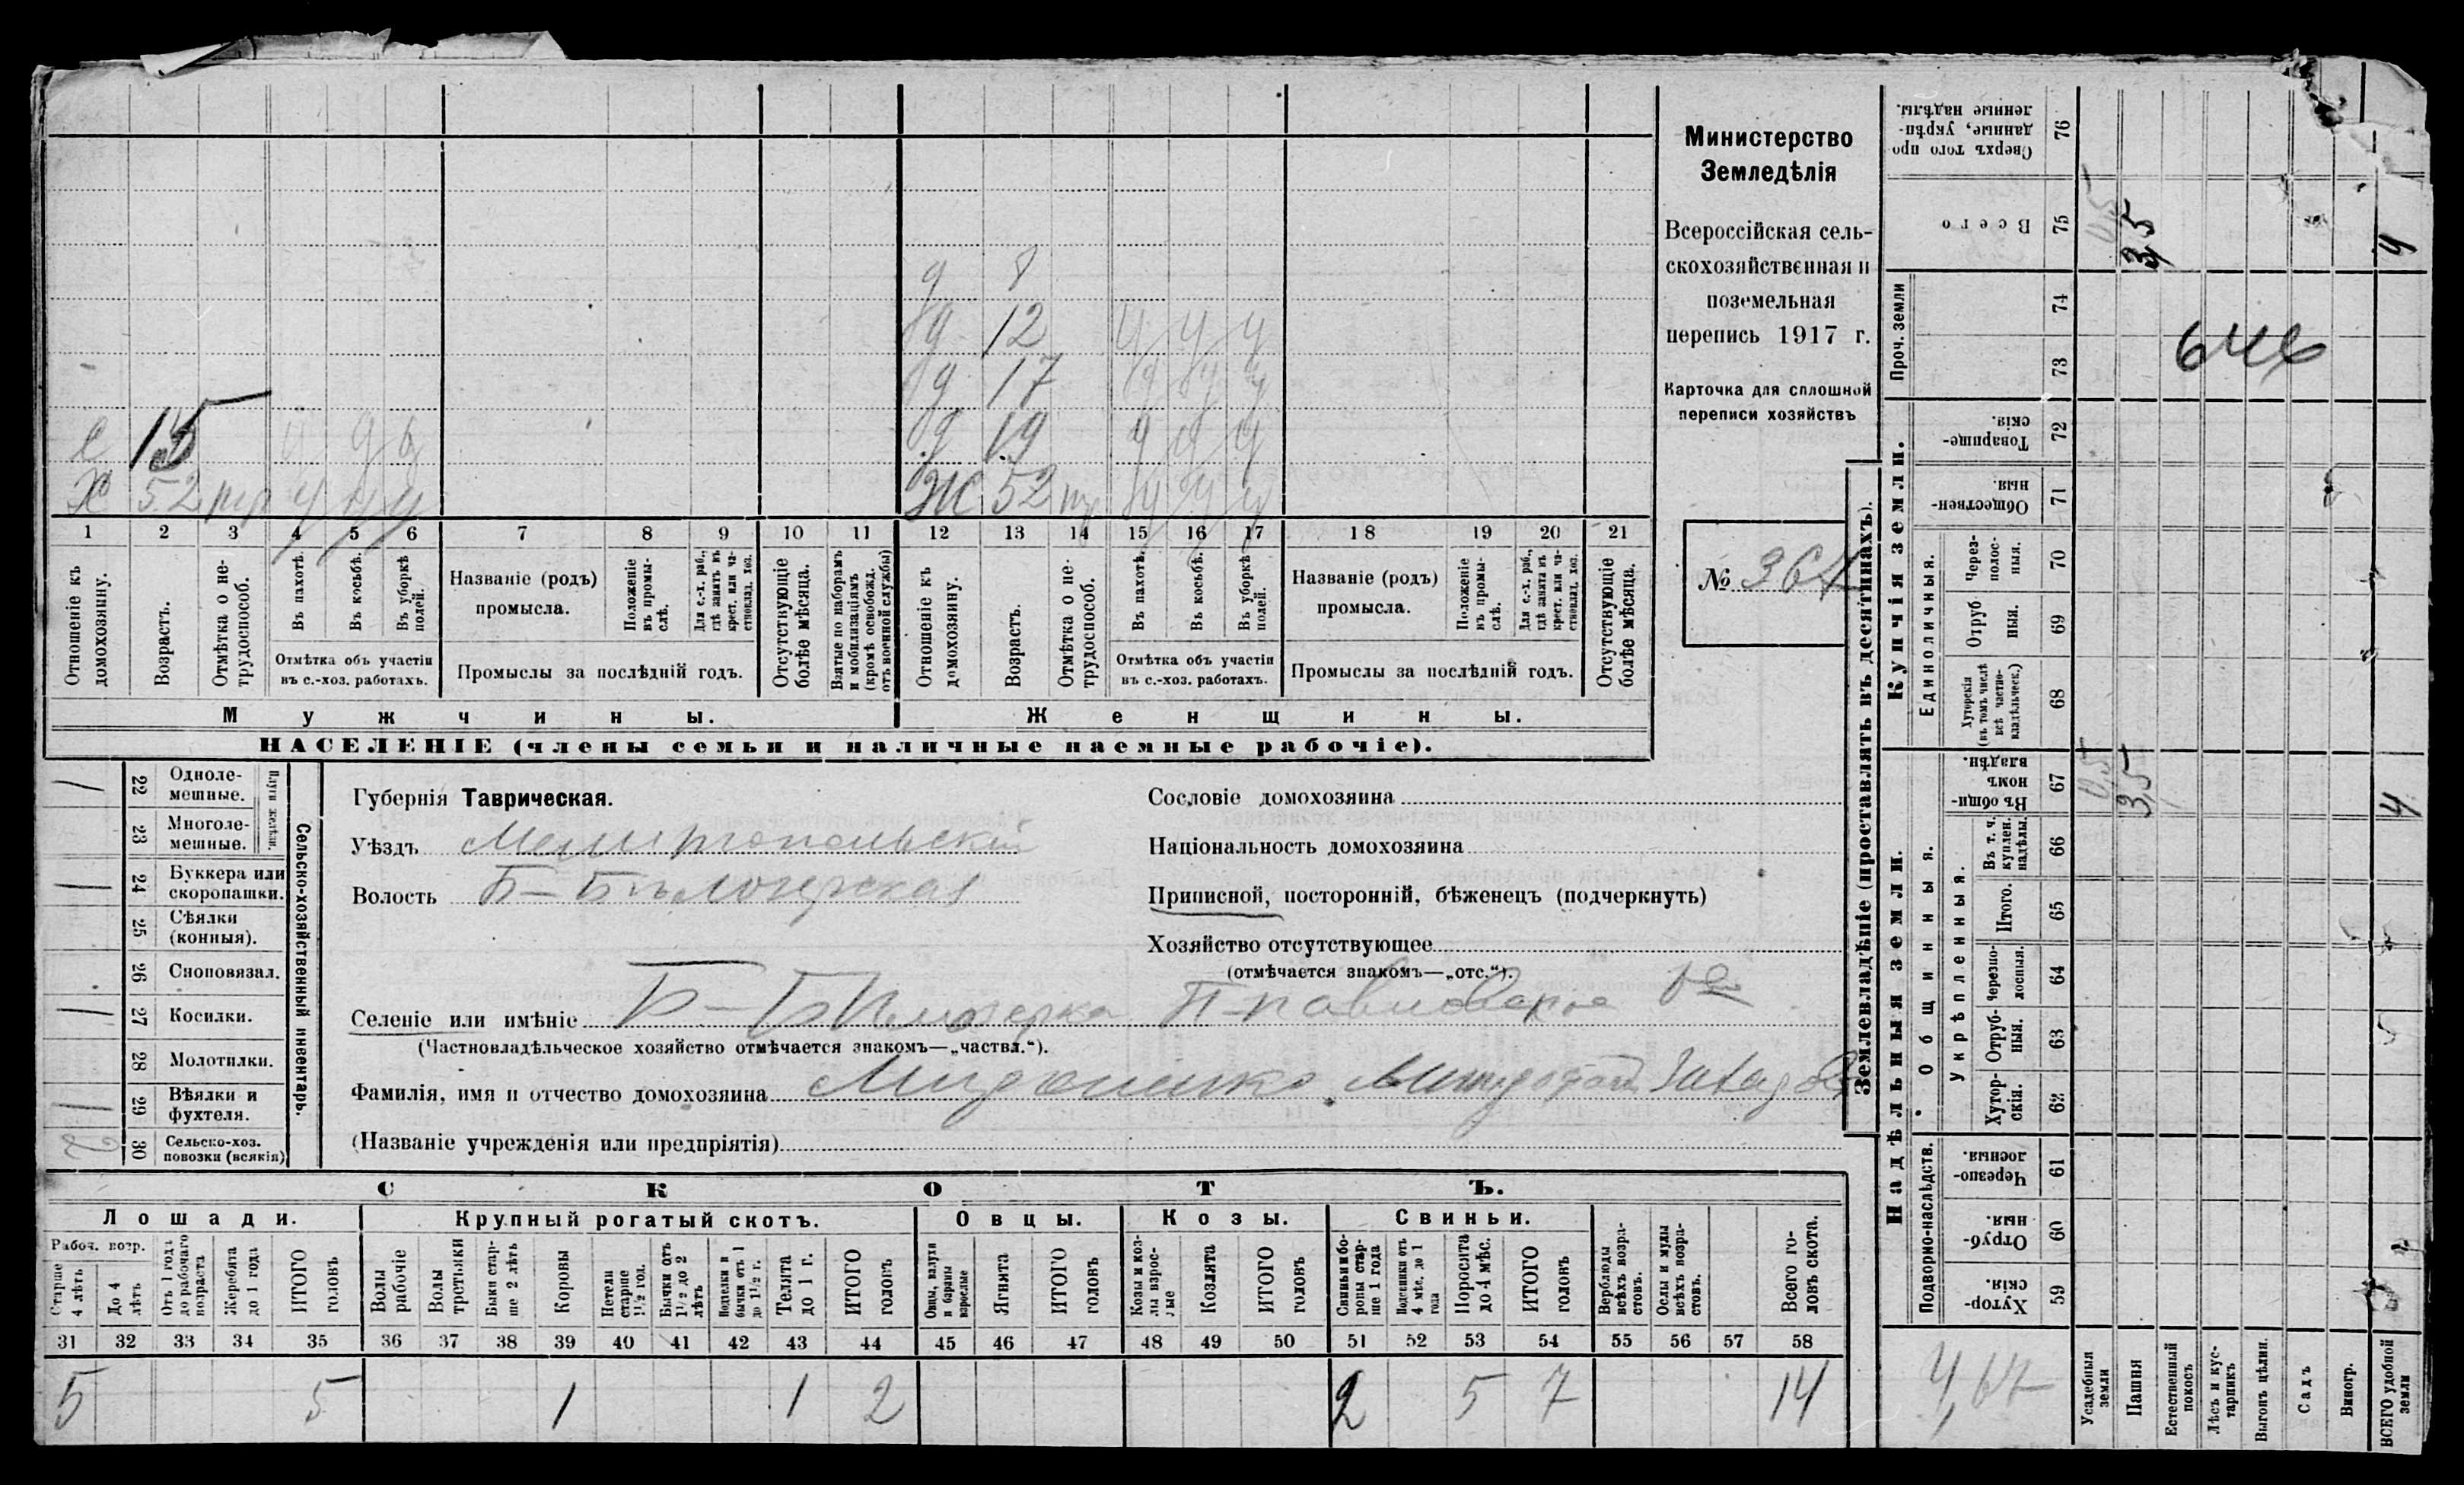 Министерство
Земледѣлія
Всероссійская сель-
скохозяйственная и
поземельная
перепись 1917 г.
Карточка для сплошной
переписи хозяйствъ
№ 364
д 8
д 12 у у у
д 17 у у у
с 15 у у у
д 19 у у у
Х 52 тр у у у
Ж 52 тр у у у
1 2 3 4 5 6 7 8 9 10 11 12 13 14 15 16 17 18 19 20 21
Отношеніе къ домохозяину.
Возрастъ.
Отмѣтка о не-трудоспособ.
Въ пахотѣ.
Въ косьбѣ.
Въ уборкѣ полей.
Отмѣтка объ участіи
въ с.-хоз. работахъ.
Названіе (родъ)
промысла.
Положеніе въ промы-слѣ.
Для с.-х. раб., гдѣ занятъ въ крест. или ча-стновлад. хоз.
Промыслы за послѣдній годъ.
Отсутствующіе болѣе мѣсяца.
Взятые по наборамъ и мобилизаціямъ (кромѣ освобожд. отъ военной службы)
Отношеніе къ домохозяину.
Возрастъ.
Отмѣтка о не-трудоспособ.
Въ пахотѣ.
Въ косьбѣ.
Въ уборкѣ полей.
Отмѣтка объ участіи
въ с.-хоз. работахъ.
Названіе (родъ)
промысла.
Положеніе въ промы-слѣ.
Для с.-х. раб., гдѣ занятъ въ крест. или ча-стновлад. хоз.
Промыслы за послѣдній годъ.
Отсутствующіе болѣе мѣсяца.
Мужчины.
Женщины.
НАСЕЛЕНІЕ (члены семьи и наличные наемные рабочіе).
Сельско-хозяйственный инвентарь.
Плуги желѣзн.
/ 22 Одноле-мешные.
23 Многоле-мешные.
/ 24 Буккера или скоропашки.
25 Сѣялки (конныя).
26 Сноповязал.
/ 27 Косилки.
28 Молотилки.
/ 29 Вѣялки и фухтеля.
2 30 Сельско-хоз. повозки (всякія)
Губернія Таврическая.
Уѣздъ Мелитопольскій
Волость Б-Бѣлозерская
Сословіе домохозяина
Національность домохозяина
Приписной, посторонній, бѣженецъ (подчеркнуть)
Хозяйство отсутствующее
(отмѣчается знакомъ—„отс.“).
Селеніе или имѣніе Б-Бѣлозерка
(Частновладѣльческое хозяйство отмѣчается знакомъ—„частвл.“).
Фамилія, имя и отчество домохозяина
(Названіе учрежденія или предпріятія)
СКОТЪ.
Лошади.
Крупный рогатый скотъ.
Овцы.
Козы.
Свиньи.
Рабоч. возр.
Старше 4 лѣтъ
До 4 лѣтъ
Отъ 1 года до рабочаго возраста
Жеребята до 1 года
ИТОГО головъ
Волы рабочіе
Волы третьяки
Быки стар-ше 2 лѣтъ
Коровы
Нетели старше 1½ год.
Бычки отъ 1½ до 2 лѣтъ
Подтелки и бычки отъ 1 до 1½ г.
Телята до 1 г.
ИТОГО головъ
Овцы, валухи и бараны взрослые
Ягнята
ИТОГО головъ
Козы и коз-лы взрос-лые
Козлята
ИТОГО головъ
Свиньи и бо-ровы стар-ше 1 года
Подсвинки отъ 4 мѣс. до 1 года
Поросята до 4 мѣс.
ИТОГО головъ
Верблюды всѣхъ возра-стовъ.
Ослы и мулы всѣхъ возра-стовъ.
Всего го-ловъ скота.
31 32 33 34 35 36 37 38 39 40 41 42 43 44 45 46 47 48 49 50 51 52 53 54 55 56 57 58
5 5 1 1 2 2 5 7 14
Землевладѣніе (проставлять въ десятинахъ).
Надѣльныя земли.
Купчія земли.
Проч. земли
Подворно-наслѣдств.
Общинныя.
Укрѣпленныя.
Единоличныя.
76 Сверхъ того про-данные, укрѣп-ленные надѣлы.
75 Всего 0,5 3,5 4
74
73
646
72 Товарище-скія.
71 Обществен-ныя.
70 Через-полос-ныя.
69 Отруб-ныя.
68 Хуторскія (въ томъ числѣ всѣ частно-владѣльческ.)
67 Въ общин-номъ владѣн. 0,5 3,5 4
66 Въ т. ч. куплен. надѣлы.
65 Итого.
64 Черезпо-лосныя.
63 Отруб-ныя.
62 Хутор-скія.
61 Черезпо-лосныя.
60 Отруб-ныя.
59 Хутор-скія.
Усадебныя земли
Пашня
Естественный покосъ
Лѣсъ и кус-тарникъ
Выгонъ цѣлин.
Садъ
Виногр.
ВСЕГО удобной земли